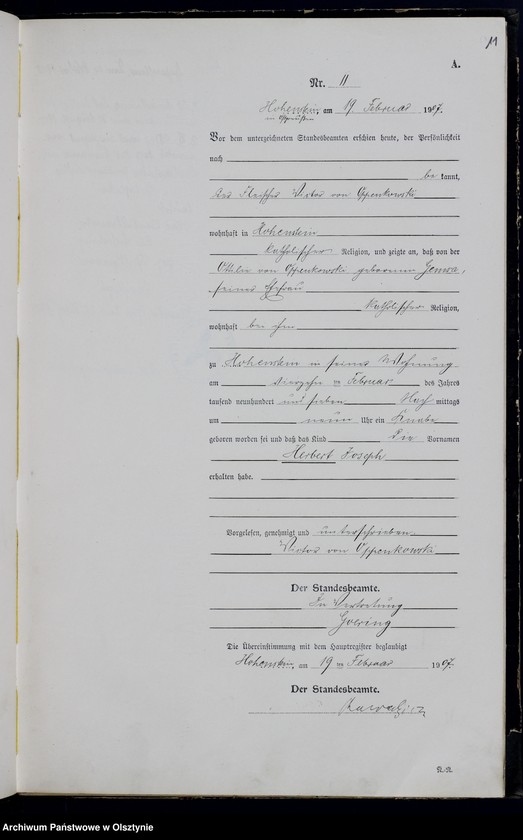 11
A.
Nr. 11
Hohenstein, am 19 Februar 1907.
in Ostpreußen
Vor dem unterzeichneten Standesbeamten erschien heute, der Persönlichkeit
nach
be kannt,
der Fleischer Victor von Oppenkowski
wohnhaft in Hohenstein
katholischer Religion, und zeigte an, daß von der
Ottilie von Oppenkowski geborenen
seiner Ehefrau
katholischer Religion,
wohnhaft bei ihm
zu Hohenstein in seiner Wohnung
am vierzehn ten Februar des Jahres
tausend neunhundert und sieben Nach mittags
um neun Uhr ein Knabe
geboren worden sei und daß das Kind die Vornamen
Herbert Joseph
erhalten habe.
Vorgelesen, genehmigt und unterschrieben
Victor von Oppenkowski
Der Standesbeamte.
In Vertretung
Goering
Die Übereinstimmung mit dem Hauptregister beglaubigt
Hohenstein, am 19 ten Februar 1907.
Der Standesbeamte.
Archiwum Państwowe w Olsztynie